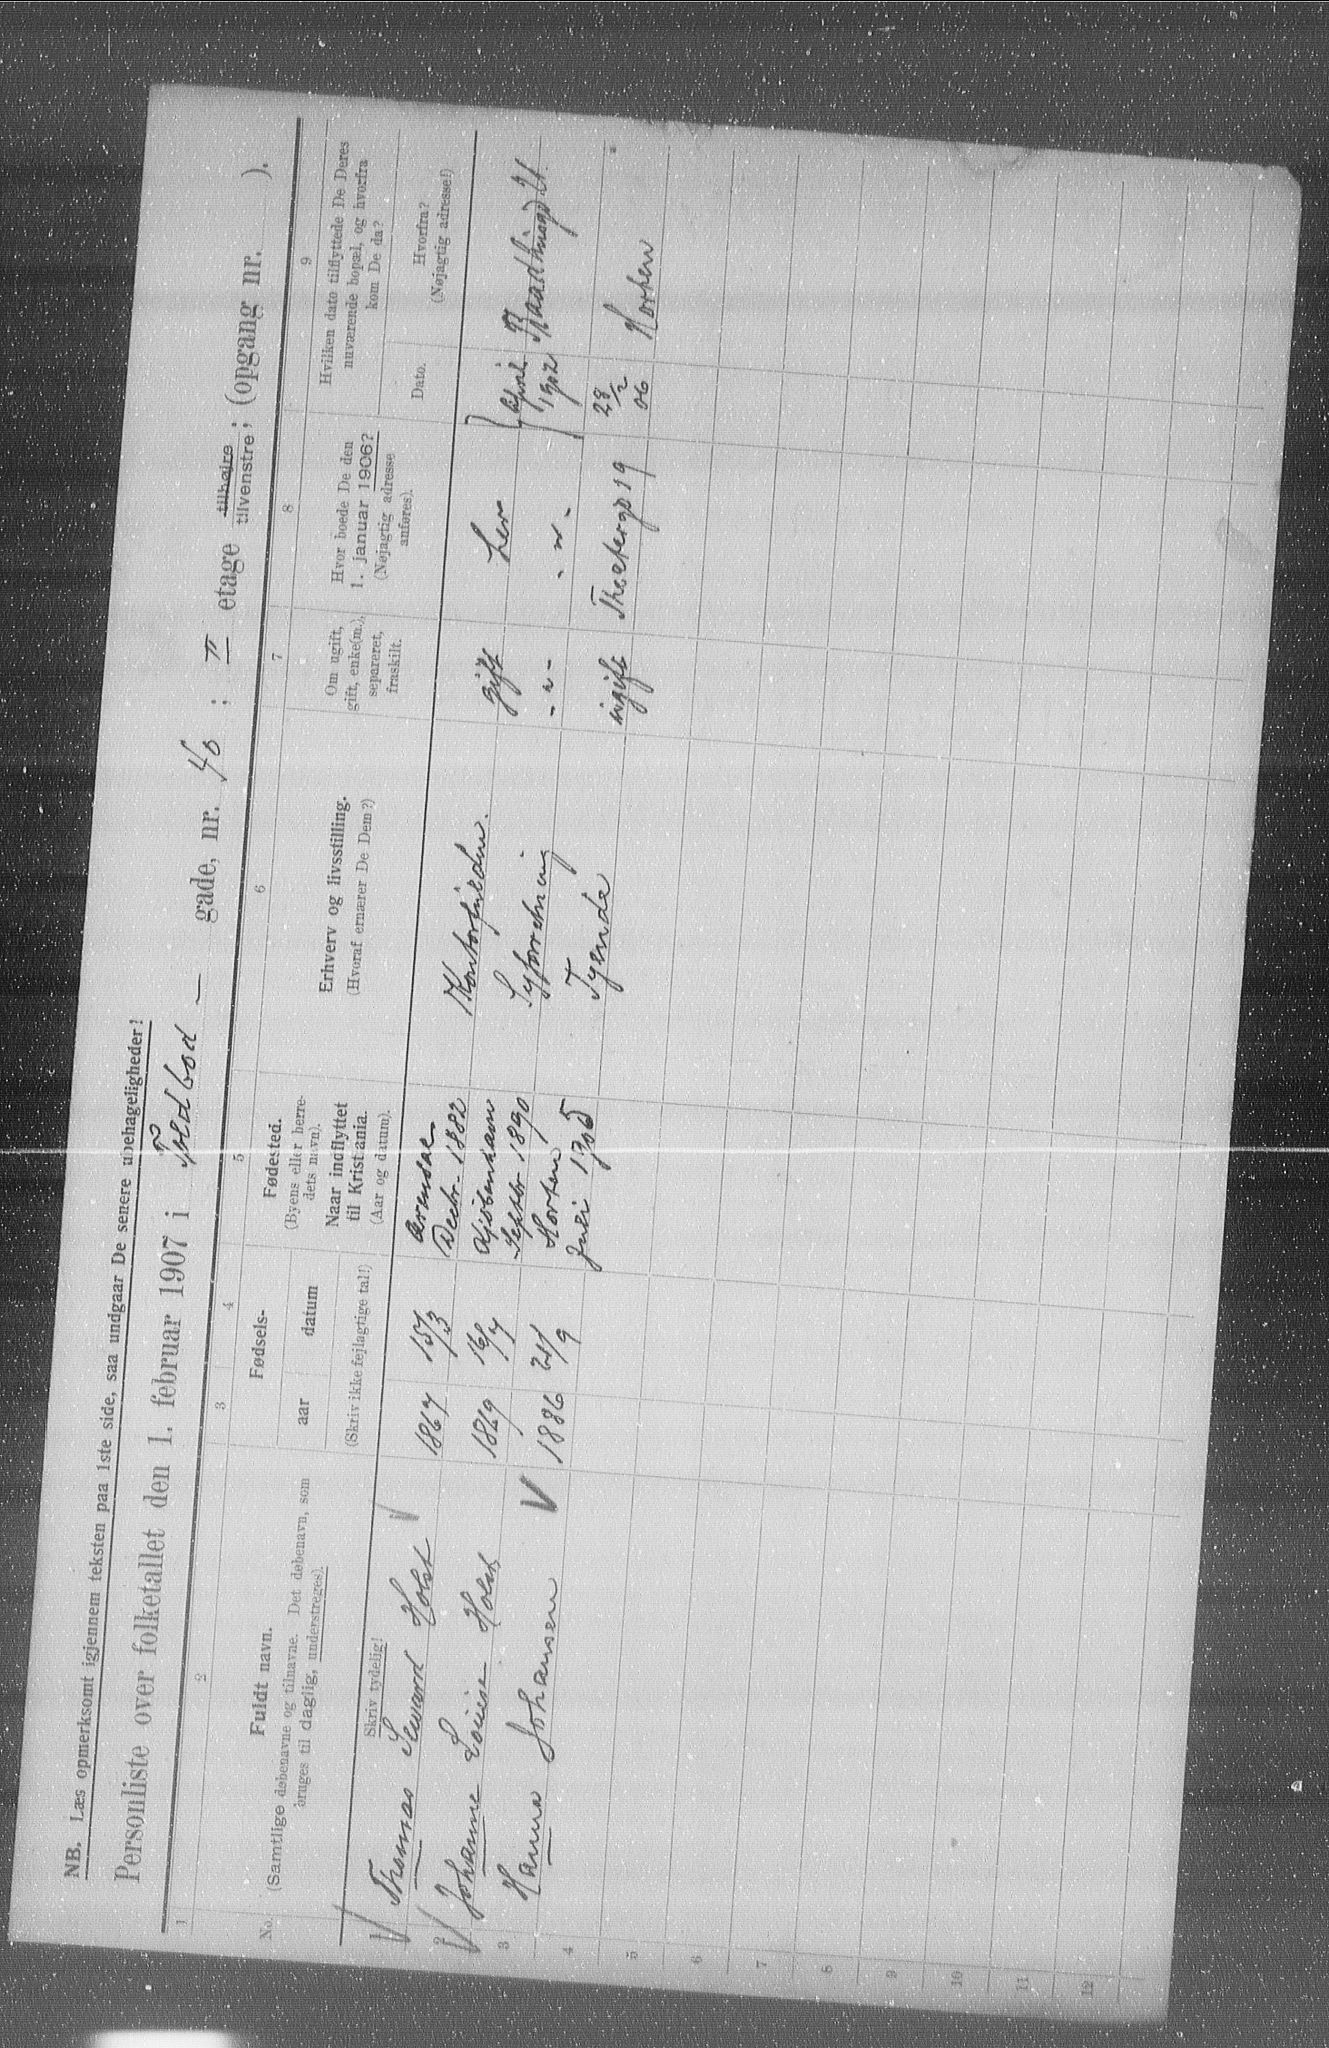 NB. Læs opmerksomt igjennem teksten paa 1ste side, saa undgaar De senere ubehageligheder!
Personliste over folketallet den 1. februar 1907 i Toldbod — gade, nr. 40 ; II etage tilhøire tilvenstre ; (opgang nr. ).
1 2 3 4 5 6 7 8 9
No.
Fuldt navn.
(Samtlige døbenavne og tilnavne. Det døbenavn, som
bruges til daglig, understreges).
Skriv tydelig!
Fødsels-
aar datum
(Skriv ikke fejlagtige tal!)
Fødested.
(Byens eller herre-
dets navn).
Naar indflyttet
til Kristiania.
(Aar og datum).
Erhverv og livsstilling.
(Hvoraf ernærer De Dem?)
Om ugift,
gift, enke(m.),
separeret,
fraskilt.
Hvor boede De den
1. januar 1906?
(Nøjagtig adresse
anføres).
Hvilken dato tilflyttede De Deres
nuværende bopæl, og hvorfra
kom De da?
Dato.
Hvorfra?
(Nøjagtig adresse!)
1 Thomas Holst 1867 15/3 Arendal Decbr. 1882 gift her April 1902 21.
2 Johanne Louise Holst 1869 16/7 Kjøbenhavn Septbr 1890 Syforretning - " - - " -
3 Hanna Johansen 1886 21/9 Horten Juli 1905 Tjende ugift Theatergd 19 28/2 06 Horten
4
5
6
7
8
9
10
11
12